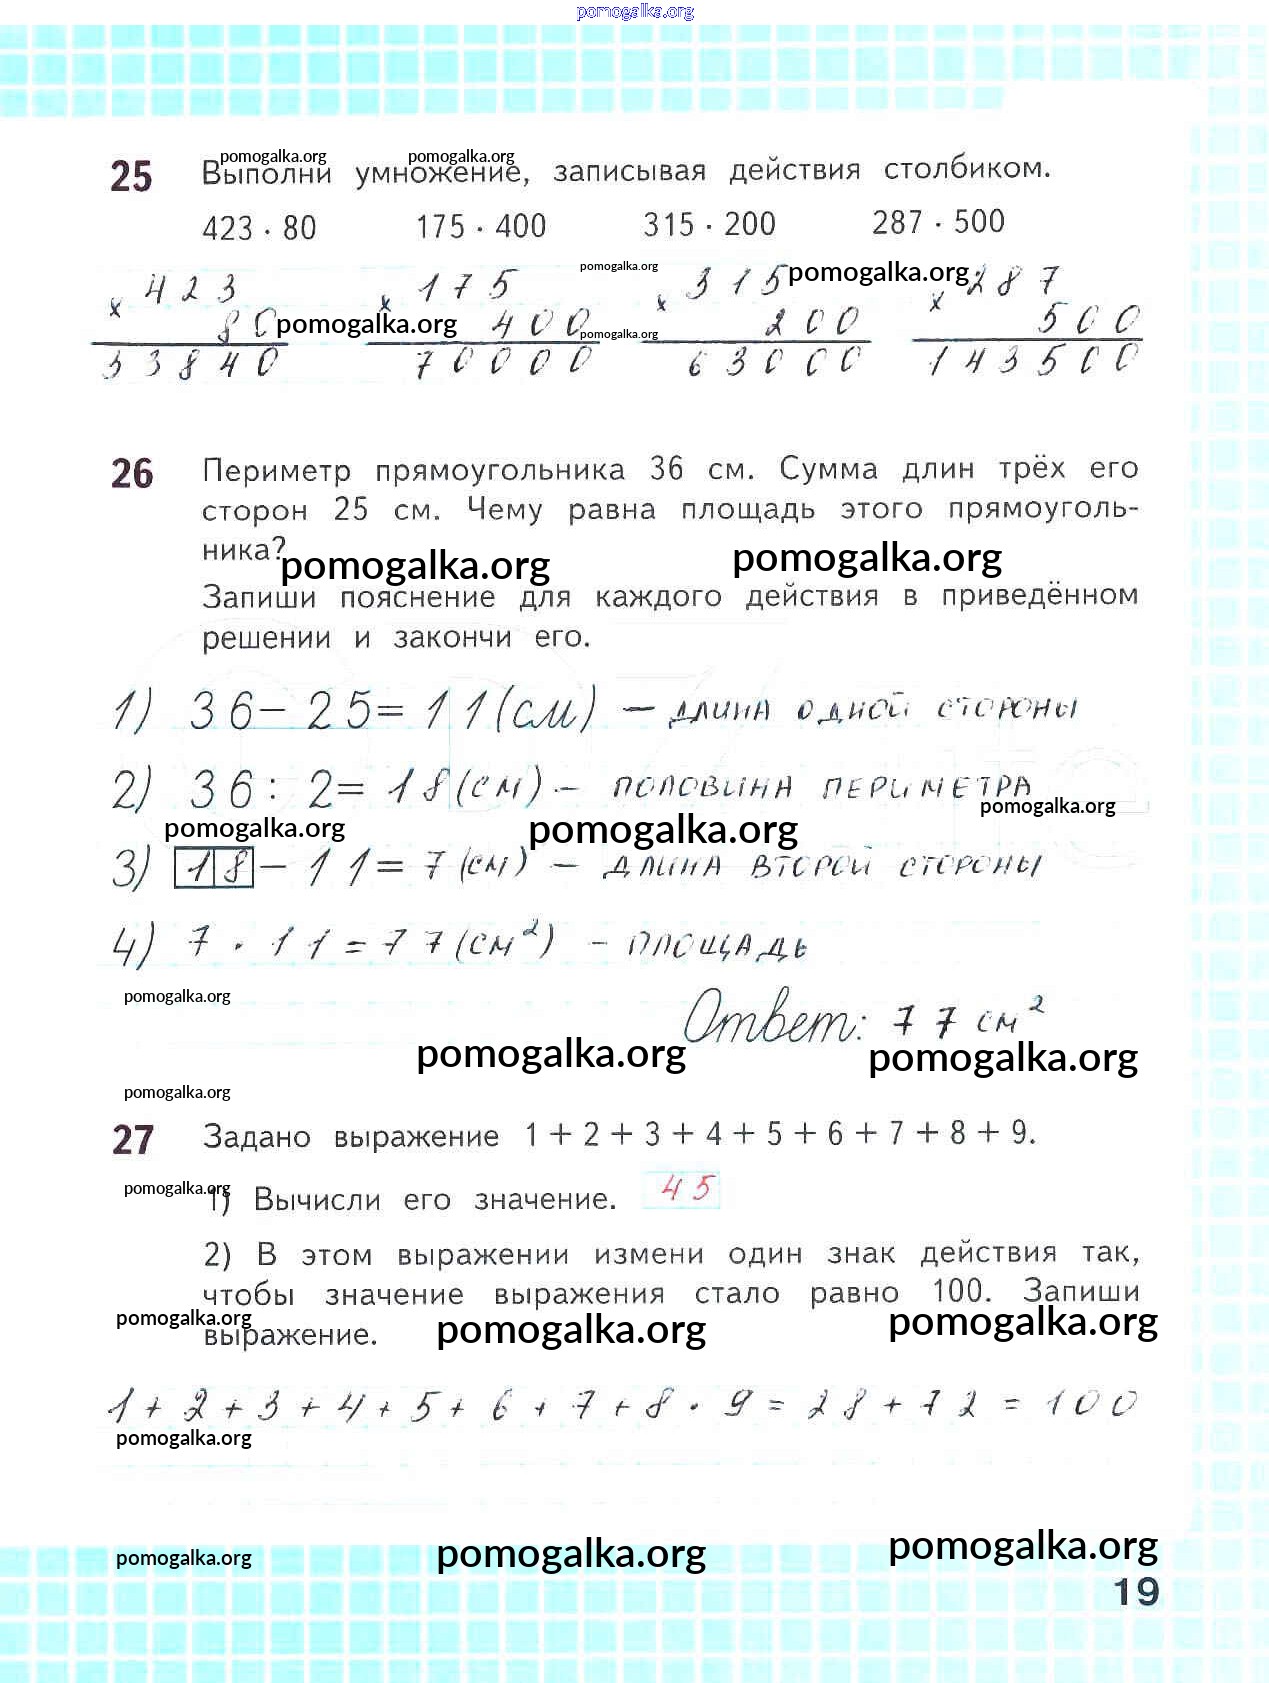 pomogalka.org
pomogalka.org pomogalka.org
25 Выполни умножение, записывая действия столбиком.
423 · 80 175 · 400 315 · 200 287 · 500
pomogalka.org pomogalka.org
× 423 × 175 × 315 × 287
80 400 200 500
pomogalka.org pomogalka.org
33840 70000 63000 143500
26 Периметр прямоугольника 36 см. Сумма длин трёх его
сторон 25 см. Чему равна площадь этого прямоуголь-
ника?
pomogalka.org pomogalka.org
Запиши пояснение для каждого действия в приведённом
решении и закончи его.
1) 36 – 25 = 11 (см) – длина одной стороны
2) 36 : 2 = 18 (см) – половина периметра
pomogalka.org pomogalka.org pomogalka.org
3) 18 – 11 = 7 (см) – длина второй стороны
4) 7 · 11 = 77 (см²) – площадь
pomogalka.org
Ответ: 77 см²
pomogalka.org pomogalka.org
pomogalka.org
27 Задано выражение 1 + 2 + 3 + 4 + 5 + 6 + 7 + 8 + 9.
pomogalka.org
1) Вычисли его значение. 45
2) В этом выражении измени один знак действия так,
чтобы значение выражения стало равно 100. Запиши
pomogalka.org pomogalka.org pomogalka.org
выражение.
1 + 2 + 3 + 4 + 5 + 6 + 7 + 8 · 9 = 28 + 72 = 100
pomogalka.org
pomogalka.org pomogalka.org pomogalka.org
19